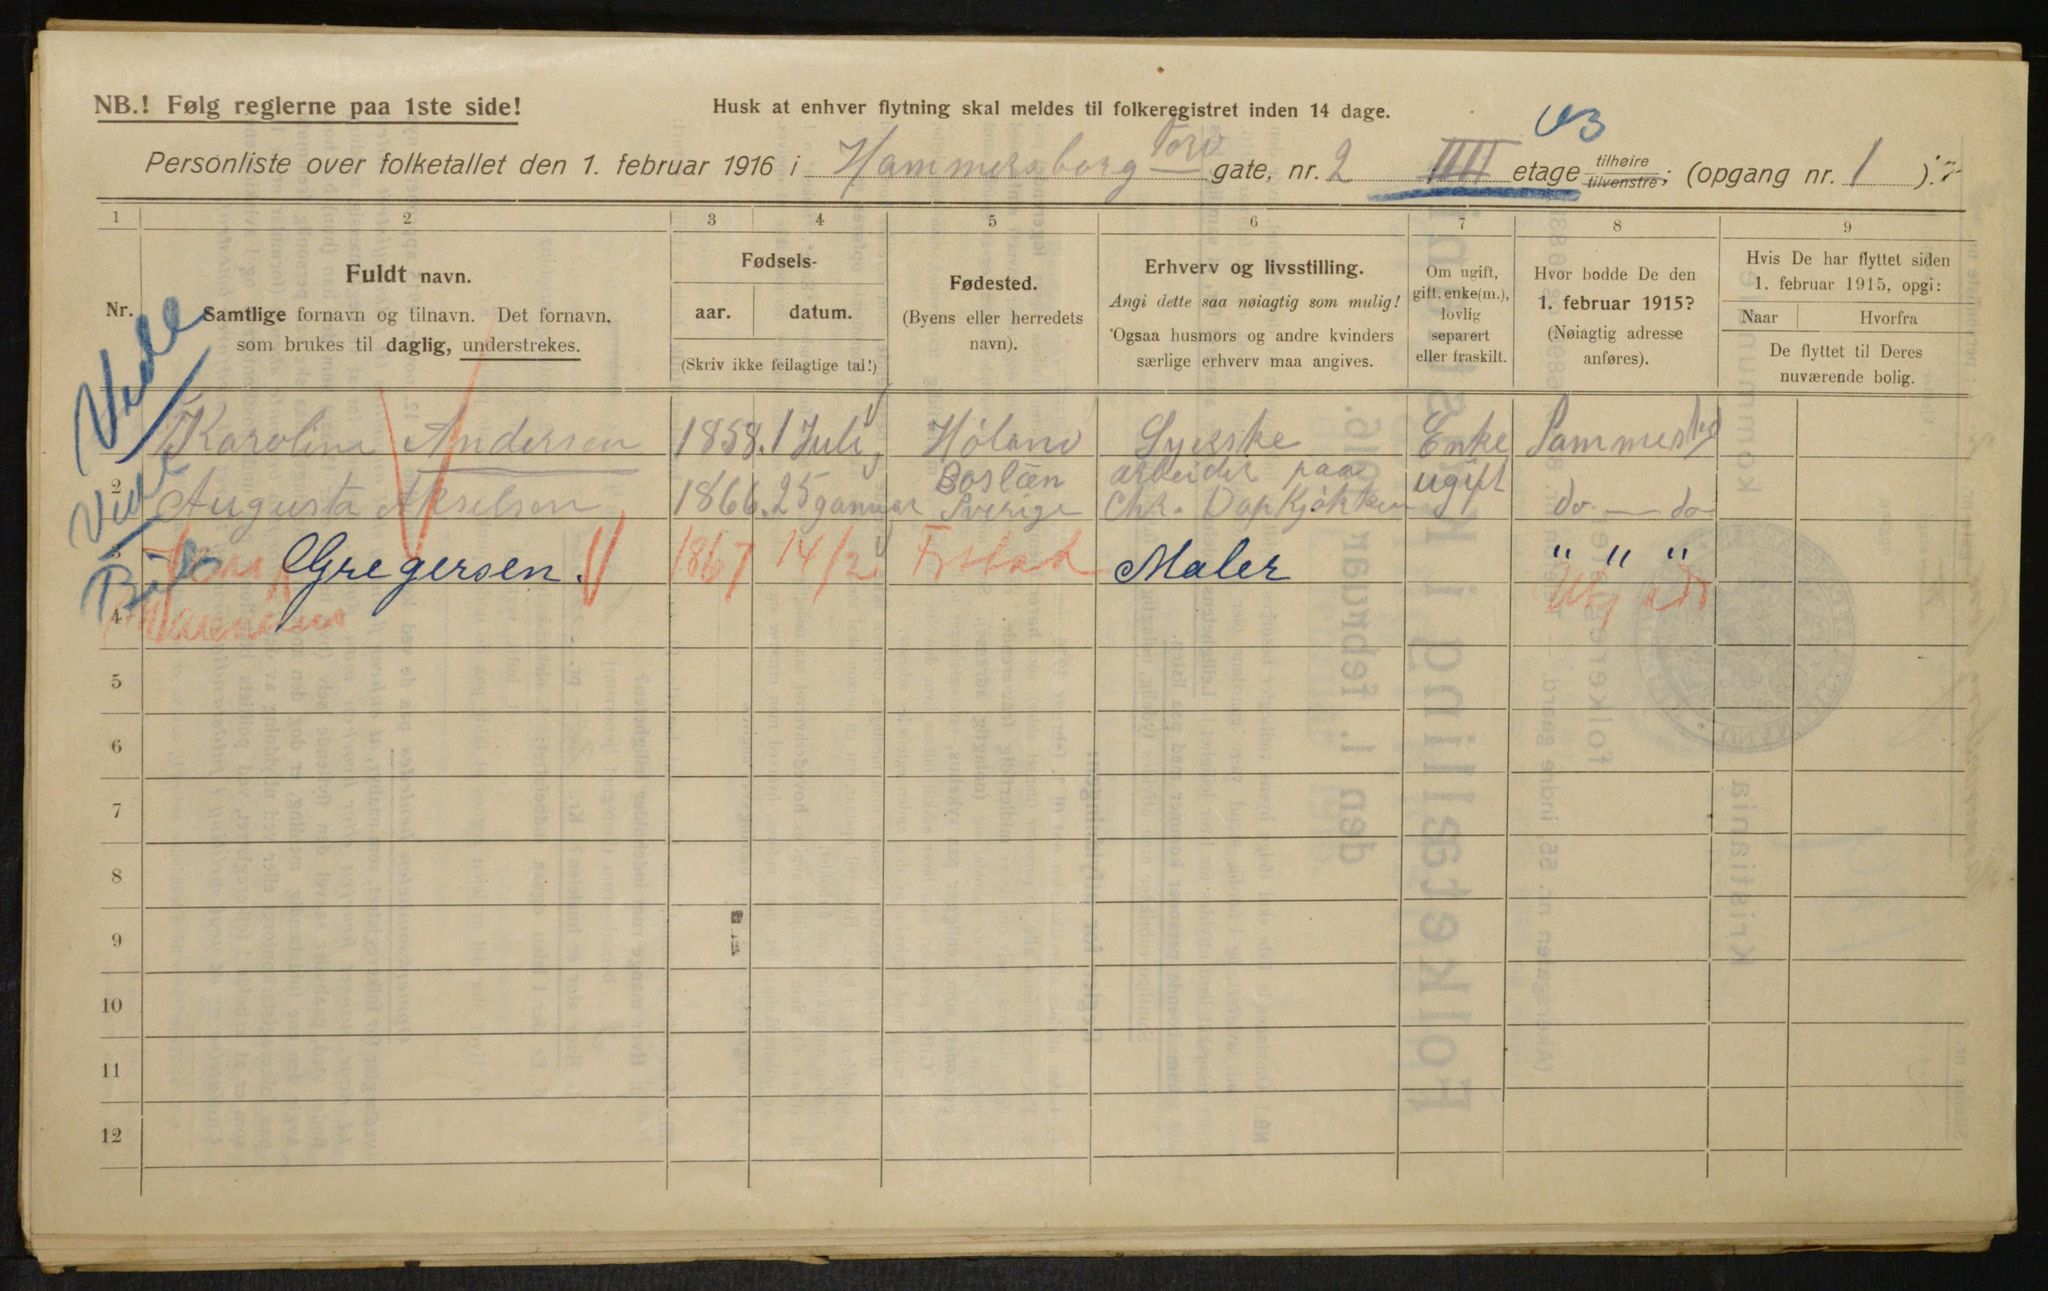 NB.! Følg reglerne paa 1ste side!
Husk at enhver flytning skal meldes til folkeregistret inden 14 dage.
Personliste over folketallet den 1. februar 1916 i Hammersborg Torv gate, nr. 2 IIII etage tilhøire tilvenstre; (opgang nr. 1 ).
1 2 3 4 5 6 7 8 9
Nr.
Fuldt navn.
Samtlige fornavn og tilnavn. Det fornavn,
som brukes til daglig, understrekes.
Fødsels-
aar. datum.
(Skriv ikke feilagtige tal!)
Fødested.
(Byens eller herredets
navn).
Erhverv og livsstilling.
Angi dette saa nøiagtig som mulig!
Ogsaa husmors og andre kvinders
særlige erhverv maa angives.
Om ugift,
gift, enke(m.),
lovlig
separert
eller fraskilt.
Hvor bodde De den
1. februar 1915?
(Nøiagtig adresse
anføres).
Hvis De har flyttet siden
1. februar 1915, opgi:
Naar Hvorfra
De flyttet til Deres
nuværende bolig.
Karoline Andersen 1858. 1 Juli Høland Syerske Enke Sammested
2 Augusta Akselsen 1866. 25 januar Sverige arbeider paa Chr. Dapkjøkken ugift do — do
3 Gregersen. 1867 14/2 Maler " " "
4
5
6
7
8
9
10
11
12